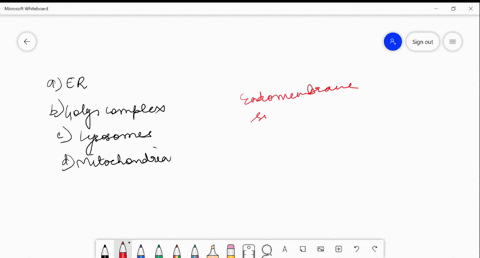 Microsoft Whiteboard
Sign out
a) ER
b) Golgi complex
c) Lysosomes
d) Mitochondria
Endomembrane